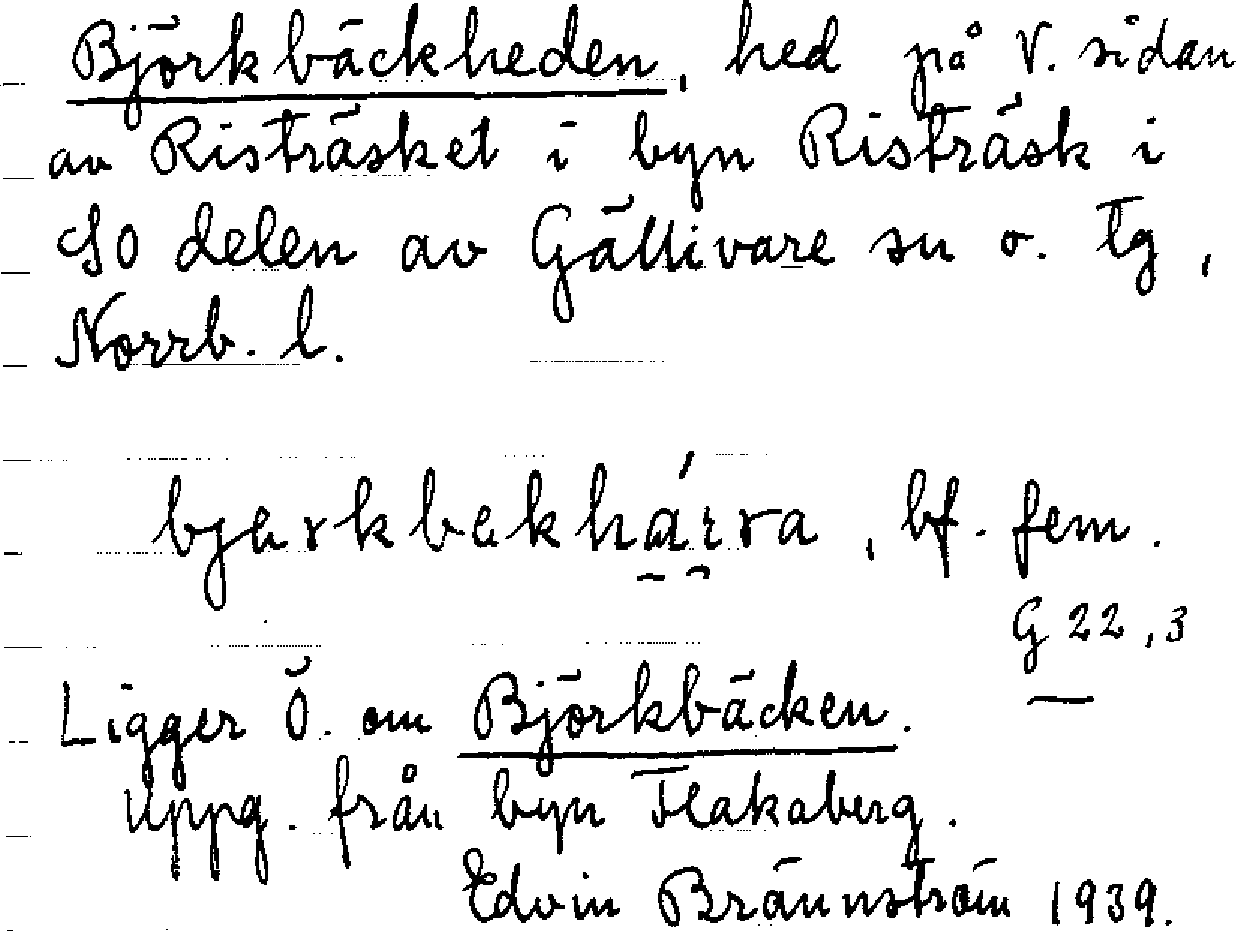 Björkbäckheden, hed på V. sidan
av Risträsket i byn Risträsk i
SO delen av Gällivare sn o. tg,
Norrb. l.
bjarkbakhárra, bf. fem.
G 22,3
Ligger Ö. om Björkbäcken.
Uppg. från byn Flakaberg.
Edvin Brännström 1939.